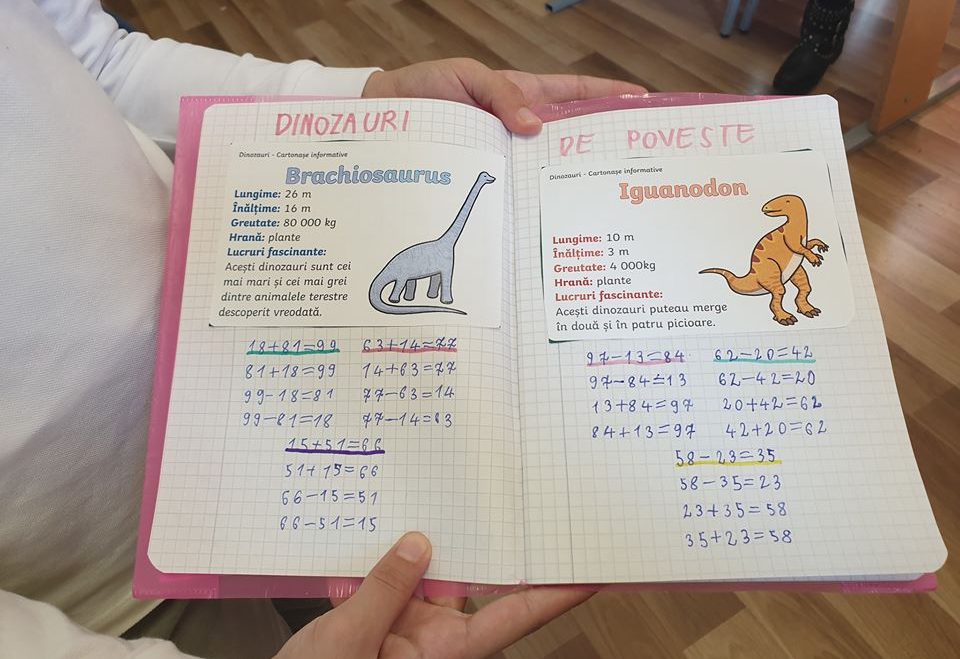 DINOZAURI
Dinozauri - Cartonașe informative
Brachiosaurus
Lungime: 26 m
Înălțime: 16 m
Greutate: 80 000 kg
Hrană: plante
Lucruri fascinante:
Acești dinozauri sunt cei
mai mari și cei mai grei
dintre animalele terestre
descoperit vreodată.
18+81=99 63+14=77
81+18=99 14+63=77
99-18=81 77-63=14
99-81=18 77-14=63
15+51=66
51+15=66
66-15=51
66-51=15
DE POVESTE
Dinozauri - Cartonașe informative
Iguanodon
Lungime: 10 m
Înălțime: 3 m
Greutate: 4 000kg
Hrană: plante
Lucruri fascinante:
Acești dinozauri puteau merge
în două și în patru picioare.
97-13=84 62-20=42
97-84=13 62-42=20
13+84=97 20+42=62
84+13=97 42+20=62
58-23=35
58-35=23
23+35=58
35+23=58